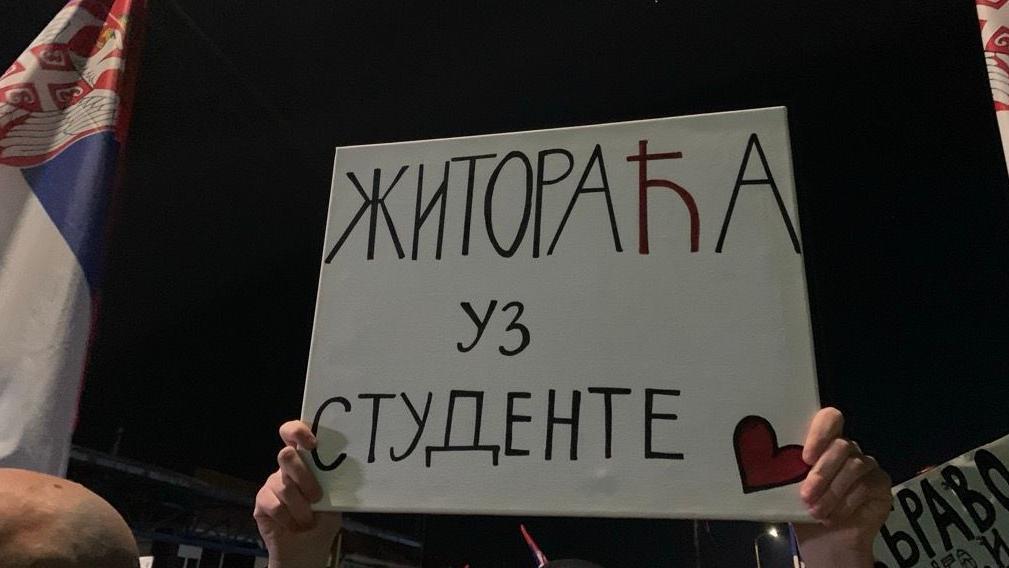 ЖИТОРАЋА
УЗ
СТУДЕНТЕ
БРАВО